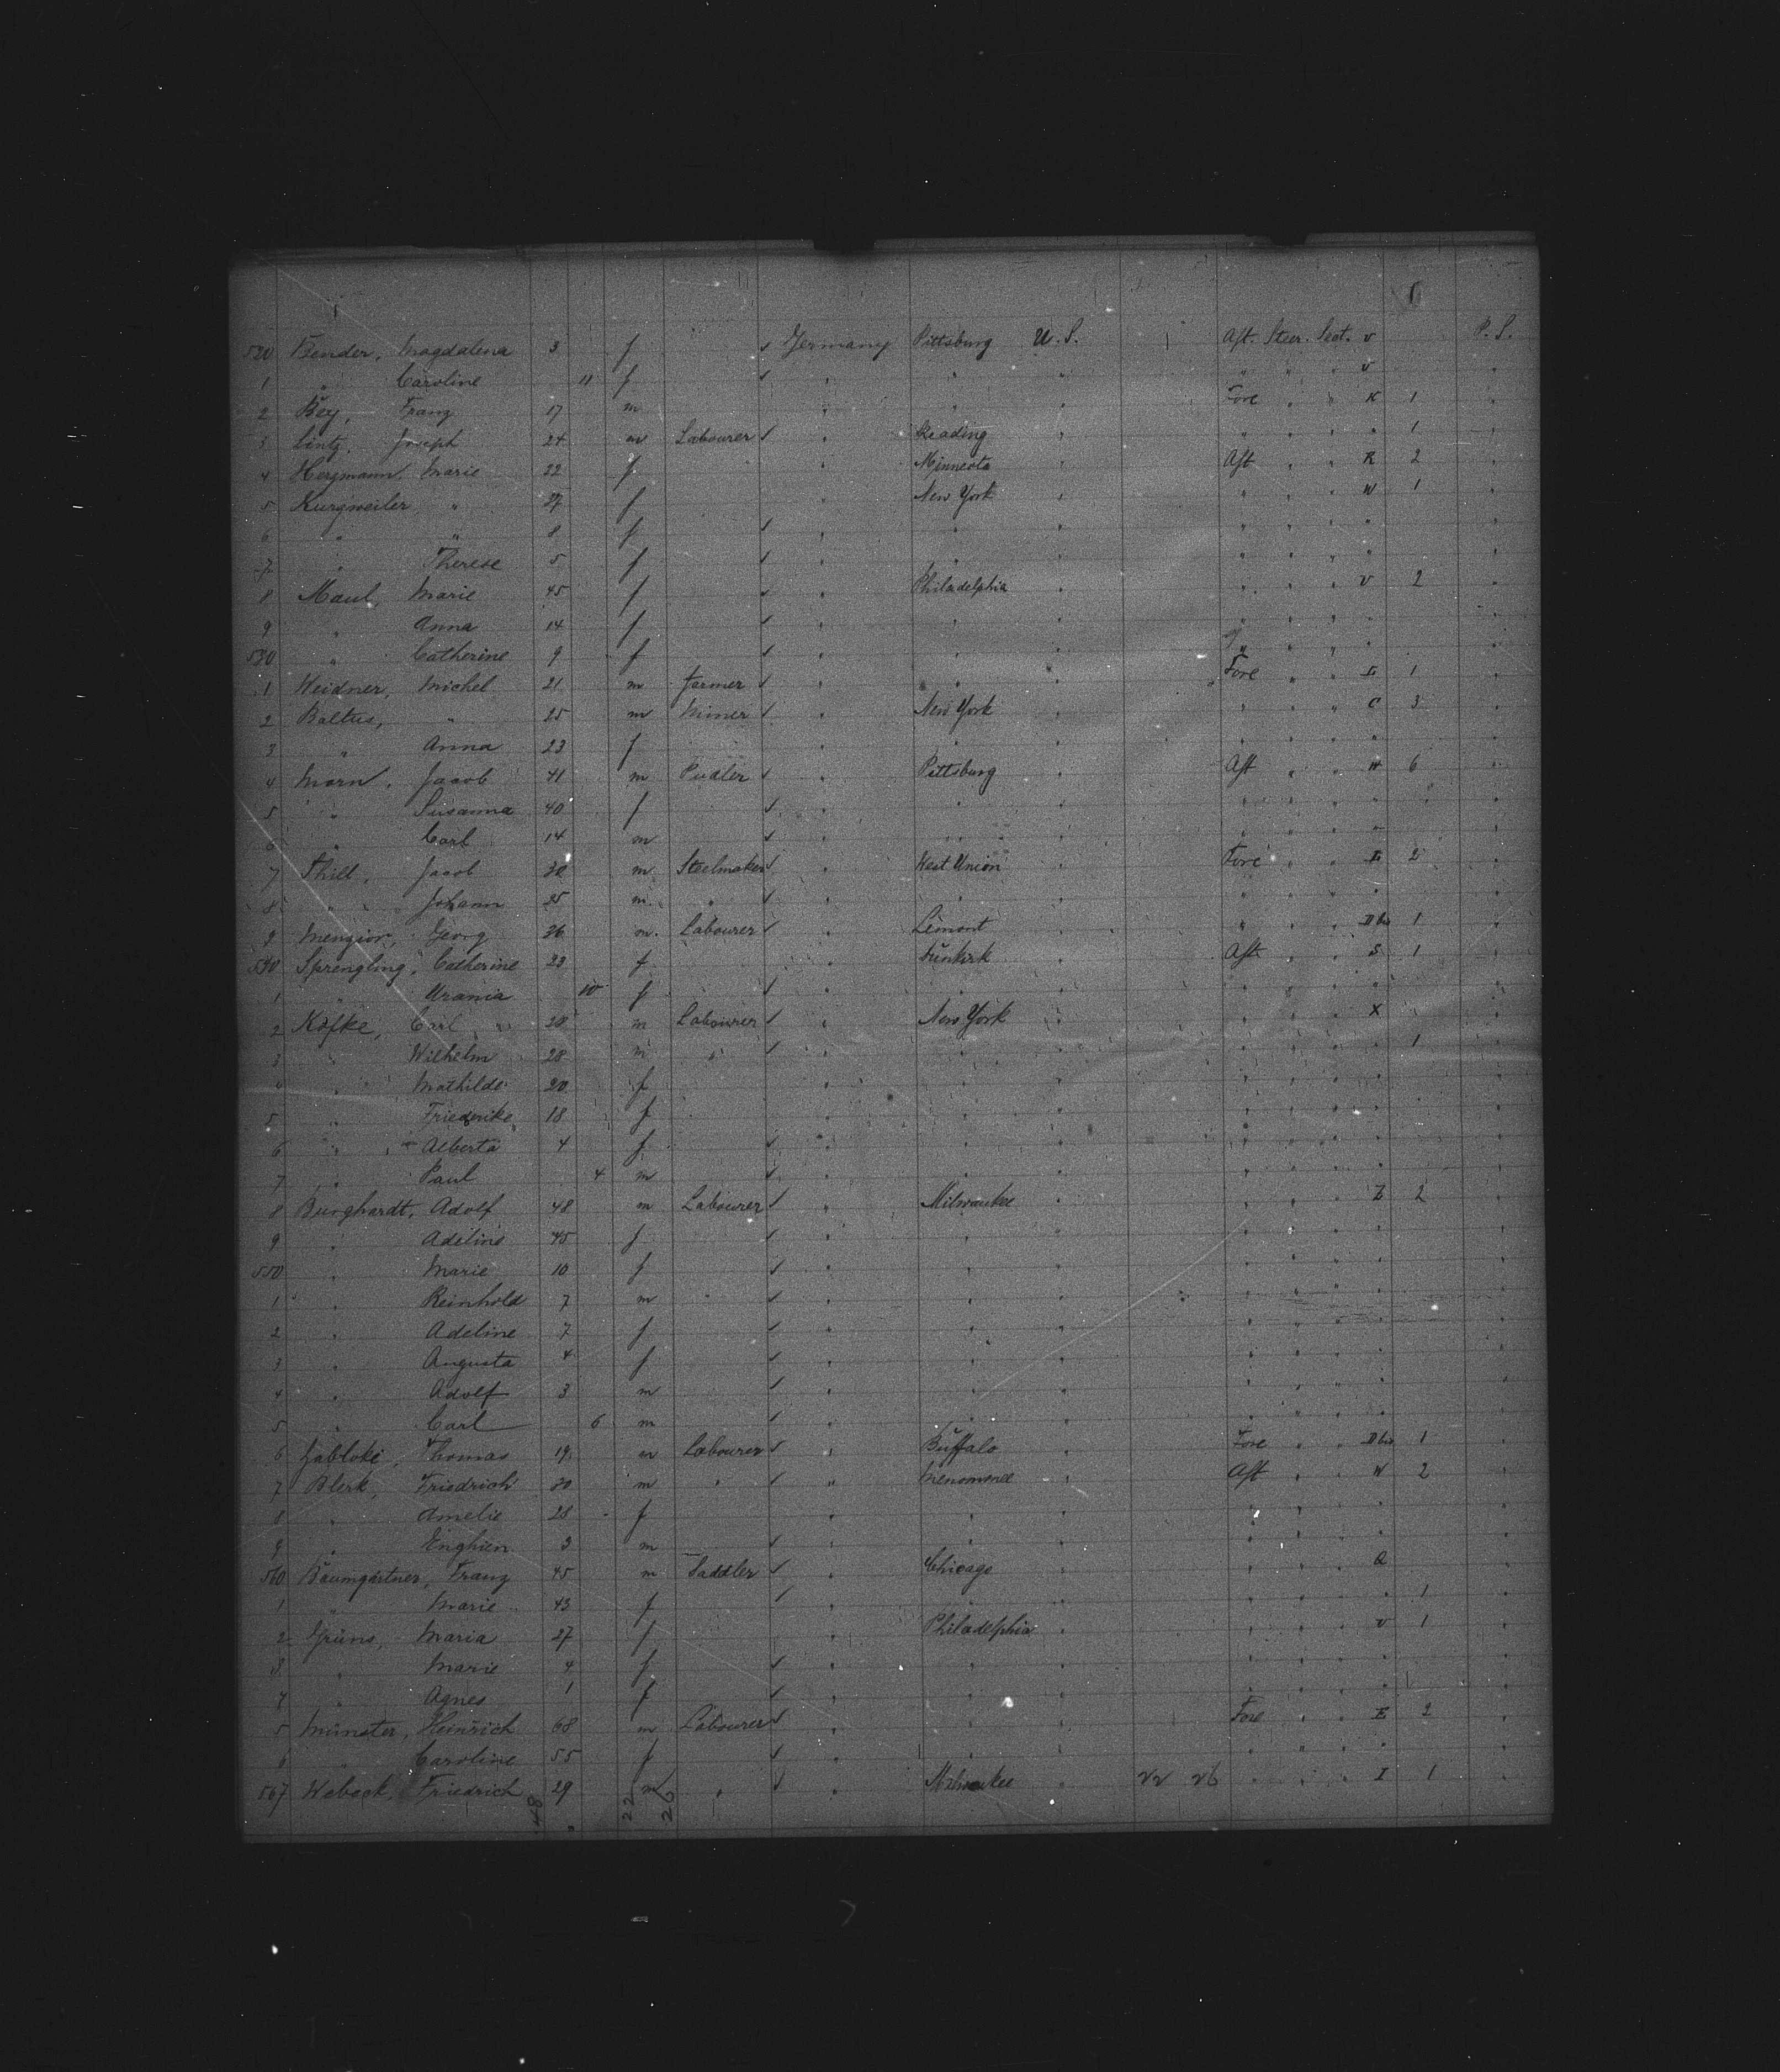 520 Bender, Magdalena 3 f ✓ Germany Pittsburg U.S. Aft. Steer. Sect. v P.S.
1 " Caroline 11 f ✓ " " " " " " v "
2 Bey, Franz 17 m " " " Fore " " K 1 "
3 Lintz, Joseph 24 m Labourer ✓ " Reading " " " " " 1 "
4 Hergmann, Marie 22 f " Minnesota " Aft " " R 2 "
5 Kurgweiler " 27 f " New York " " " " W 1 "
6 " " 8 f ✓ " " " " " " " "
7 " Therese 5 f ✓ " " " " " " " "
8 Maul, Marie 45 f ✓ " Philadelphia " " " " v 2 "
9 " Anna 14 f ✓ " " " " " " " "
530 " Catherine 9 f ✓ " " " " " " " "
1 Weidner, Michel 21 m Farmer ✓ " " " Fore " " E 1 "
2 Baltus, " 25 m Miner ✓ " New York " " " " C 3 "
3 " Anna 23 f " " " " " " " "
4 Morn, Jacob 41 m Pudler ✓ " Pittsburg " Aft " " H 6 "
5 " Susanna 40 f ✓ " " " " " " " "
6 " Carl 14 m ✓ " " " " " " " "
7 Thill, Jacob m Steelmaker ✓ " West Union " Fore " " E 2 "
8 " Johann 25 m " ✓ " " " " " " " "
9 Georg 26 m. Labourer ✓ " Lemont " " " " II bis 1 "
540 Sprengling, Catherine 23 f " Dunkirk " Aft " " S 1 "
1 " Urania 10 f ✓ " " " " " " " "
2 Kofke, Carl 28 m Labourer ✓ " New York " " " " X "
3 " Wilhelm 28 m " ✓ " " " " " " " 1 "
4 " Mathilde 20 f " " " " " " " "
5 " Friederike 18 f " " " " " " " "
6 " Alberta 4 f ✓ " " " " " " " "
7 " Paul 4 m ✓ " " " " " " " "
8 Burghardt, Adolf 48 m Labourer ✓ " Milwaukee " " " " Z 2 "
9 " Adeline 45 f ✓ " " " " " " " "
550 " Marie 10 f ✓ " " " " " " " "
1 " Reinhold 7 m ✓ " " " " " " " "
2 " Adeline 7 f ✓ " " " " " " " "
3 " Augusta 4 f ✓ " " " " " " " "
4 " Adolf 3 m ✓ " " " " " " " "
5 " Carl 6 m ✓ " " " " " " " "
6 Jabloki, Thomas 19 m Labourer ✓ " Buffalo " Fore " " II bis 1 "
7 Blerk, Friedrich 30 m " ✓ " Menomonee " Aft " " W 2 "
8 " Amelie 28 f " " " " " " " "
9 " Enghien 3 m ✓ " " " " " " " "
560 Baumgärtner, Franz 45 m Saddler ✓ " Chicago " " " " Q "
1 " Marie 43 f ✓ " " " " " " " 1 "
2 Grüns, Maria 27 f " Philadelphia " " " " v 1 "
3 " Marie 4 f ✓ " " " " " " " "
4 " Agnes 1 f ✓ " " " " " " " "
5 Münster, Heinrich 68 m Labourer ✓ " " " Fore " " E 2 "
6 " Caroline 55 f ✓ " " " " " " " "
567 Weback, Friedrich 29 m " ✓ " Milwaukee " 22 26 " " " I 1 "
48 22 26